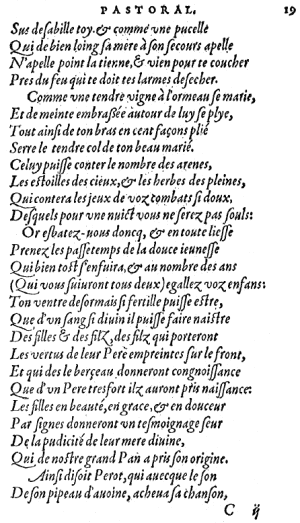 PASTORAL. 19
Sus desabille toy. & comme vne pucelle
Qui de bien loing sa mère à son secours apelle
N'apelle point la tienne, & vien pour te coucher
Pres du feu qui te doit tes larmes desecher.
Comme vne tendre vigne à l'ormeau se marie,
Et de meinte embrasée autour de luy se plye,
Tout ainsi de ton bras en cent façons plié
Serre le tendre col de ton beau marié.
Celuy puisse conter le nombre des arenes,
Les estoilles des cieux, & les herbes des pleines,
Qui contera les jeux de voz combats si doux,
Desquels pour vne nuict vous ne serez pas souls:
Or esbatez-nous doncq, & en toute liesse
Prenez les passetemps de la douce ieunesse
Qui bien tost s'enfuira, & au nombre des ans
(Qui vous suiuront tous deux) egallez voz enfans:
Ton ventre desormais si fertille puisse estre,
Que d'vn sang si diuin il puisse faire naistre
Des filles & des filz, des filz qui porteront
Les vertus de leur Perè empreintes sur le front,
Et qui des le berçeau donneront congnoissance
Que d'vn Pere tresfort ilz auront pris naissance:
Les filles en beauté, en grace, & en douceur
Par signes donneront vn tesmoignage seur
De la pudicité de leur mere diuine,
Qui de nostre grand Pan a pris son origine.
Ainsi disoit Perot, qui auecque le son
De son pipeau d'auoine, acheua sa chanson,
C ij